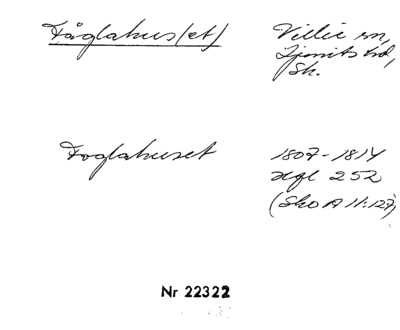 Fåglahus(et)
Villie sn,
Ljunits hd,
Sk.
Foglahuset
1807-1814
hfl 252
(SkoA 11:127)
Nr 22322